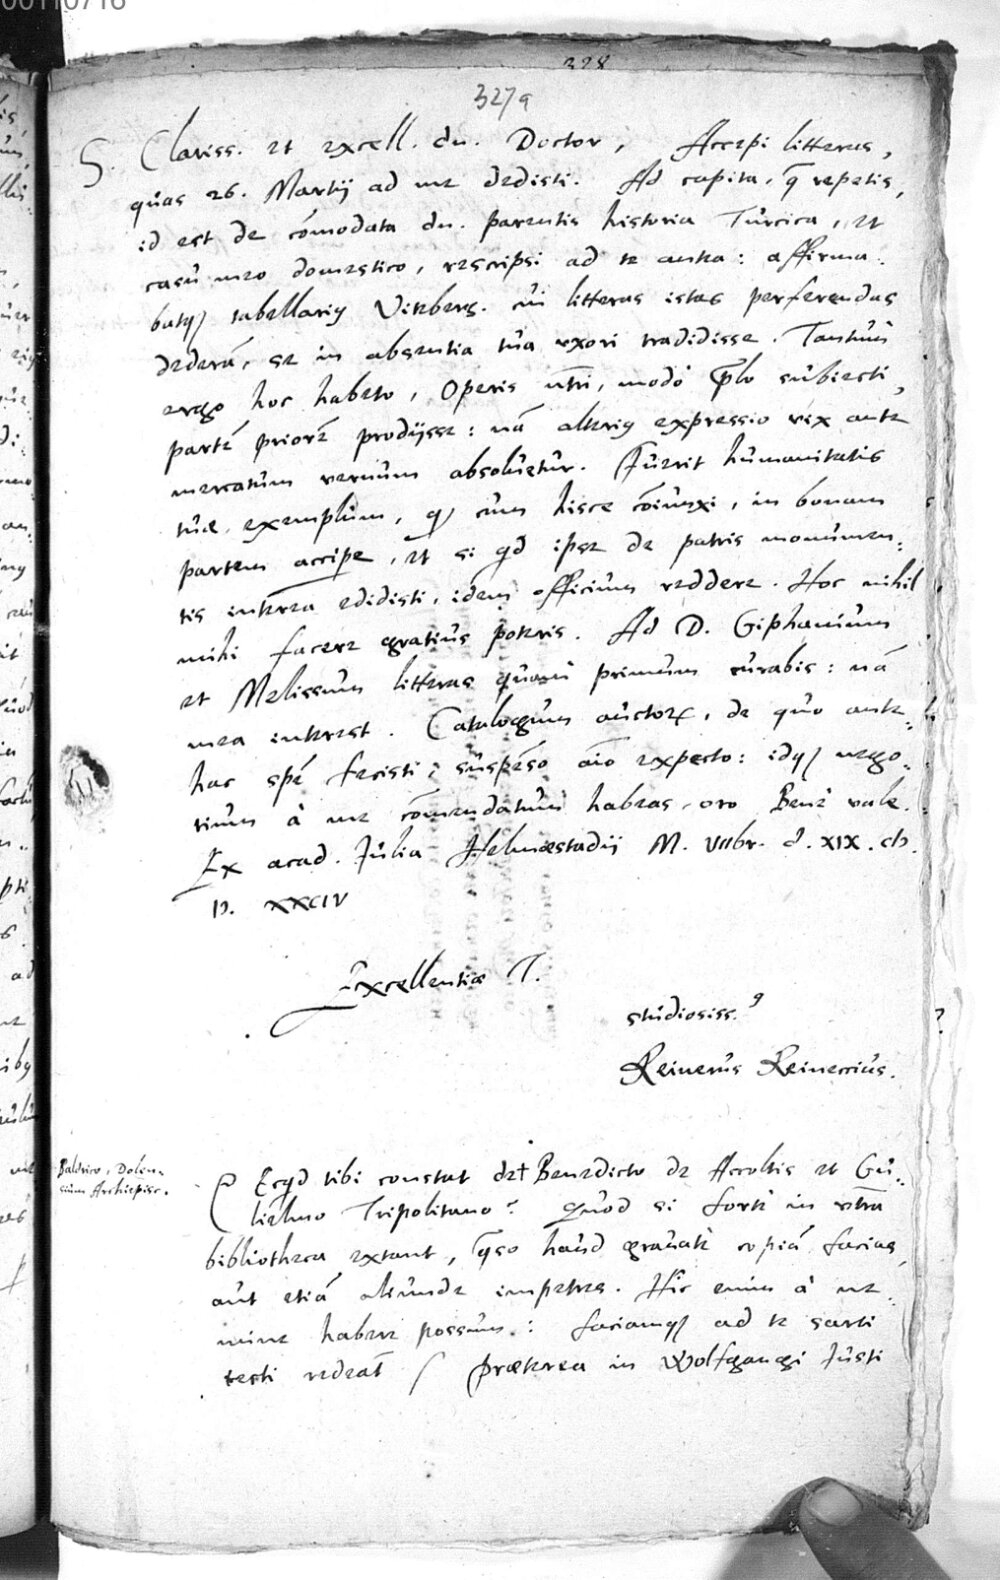 00110716
328
327a
S. Clariss. et excell. dn. Doctor, Accepi litteras,
quas 26. Martij ad me dedisti. Ad capita, q̄ repetis,
id est de cōmodata dn. parentis historia Turcica, et
casu meo domestico, rescripsi ad te antea: affirma-
batqȝ tabellariꝰ Viteberg. cui litteras istas perferendas
dederā, se in absentia tua uxori tradidisse. Tantum
ergo hoc habeto, Operis nr̄i, modò p̄lo subiecti,
partē priorē prodijsse: nā alteriꝰ expressio vix ante
mercatum vernum absoluetur. Fuerit humanitatis
tuæ exemplum, qȝ cum hisce cōiunxi, in bonam
partem accipe, et si qd ipse de patris monumen-
tis interea edidisti, idem officium reddere. Hoc nihil
mihi facere gratius poteris. Ad D. Giphanium
et Melissum litteras quàm primum curabis: nā
mea interest. Catalogum auctorꝝ, de quo ante-
hac spē fecisti, suspēso aīo expecto: idqȝ nego-
tium à me cōmendatum habeas, oro. Benè vale.
Ex acad. Iulia Helmæstadij M. Vllbr. d. XIX. cIↄ.
Iↄ. XXCIV
Excellentiæ T.
studiosiss.ꝰ
Reinerus Reineccius.
Baldrico, Dolen-
sium Archiepisc.
Ecqd tibi constat de † Benedicto de Accoltis et Gu-
lielmo Tripolitano? Quod si fortè in vr̄a
bibliotheca extant, q̄so haud grauatè copiā facias,
aut etiā aliunde impetres. Hic enim à ne-
mine habere possum: faciamqȝ ad te sarti
tecti redeāt Præterea in Wolfgangi Iusti